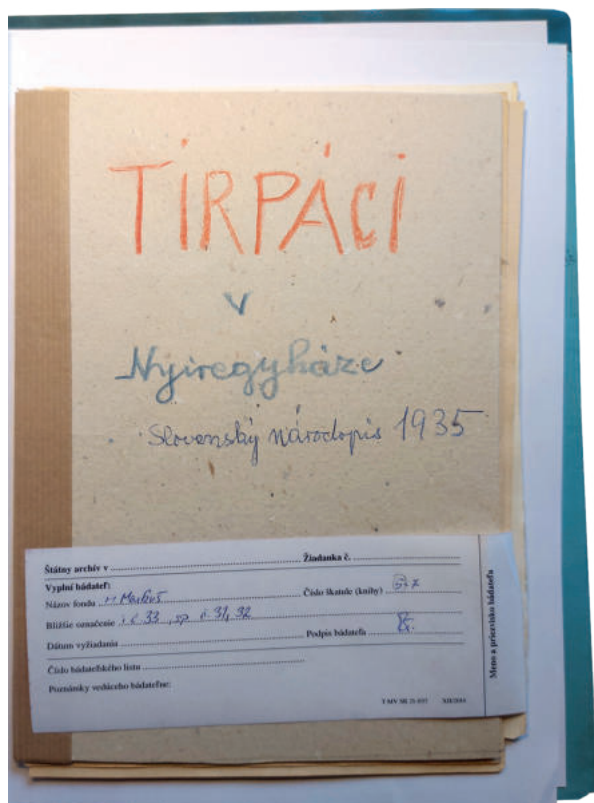 TIRPÁCI
v
Nyiregyháze
Slovenský národopis 1935
Štátny archív v
Žiadanka č.
Vyplní bádateľ:
Názov fondu
Číslo škatule (knihy)
Bližšie označenie i. č. 33, sp. č. 31, 32
Dátum vyžiadania
Podpis bádateľa
Číslo bádateľského listu
Poznámky vedúceho bádateľne:
Meno a priezvisko bádateľa